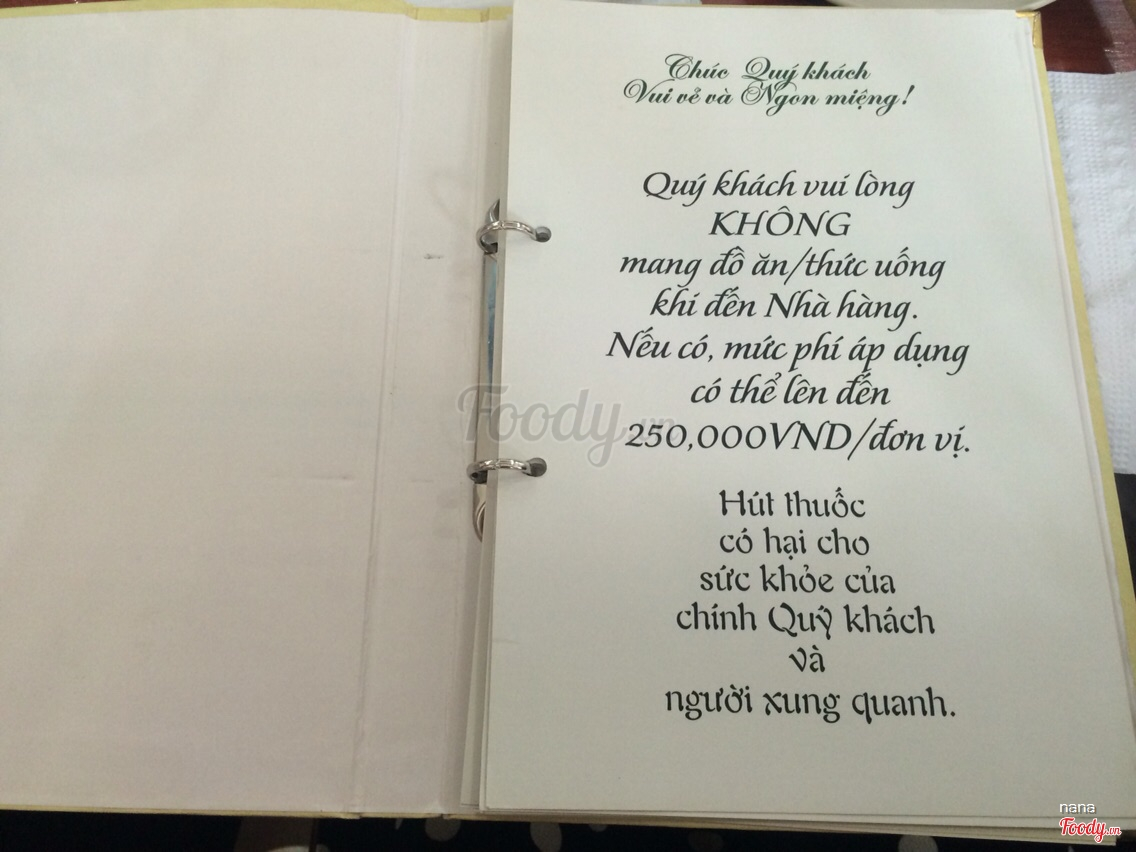 Chúc Quý khách
Vui vẻ và Ngon miệng!
Quý khách vui lòng
KHÔNG
mang đồ ăn/thức uống
khi đến Nhà hàng.
Nếu có, mức phí áp dụng
có thể lên đến
250,000VND/đơn vị.
Hút thuốc
có hại cho
sức khỏe của
chính Quý khách
và
người xung quanh.
Foody.vn
nana
Foody.vn